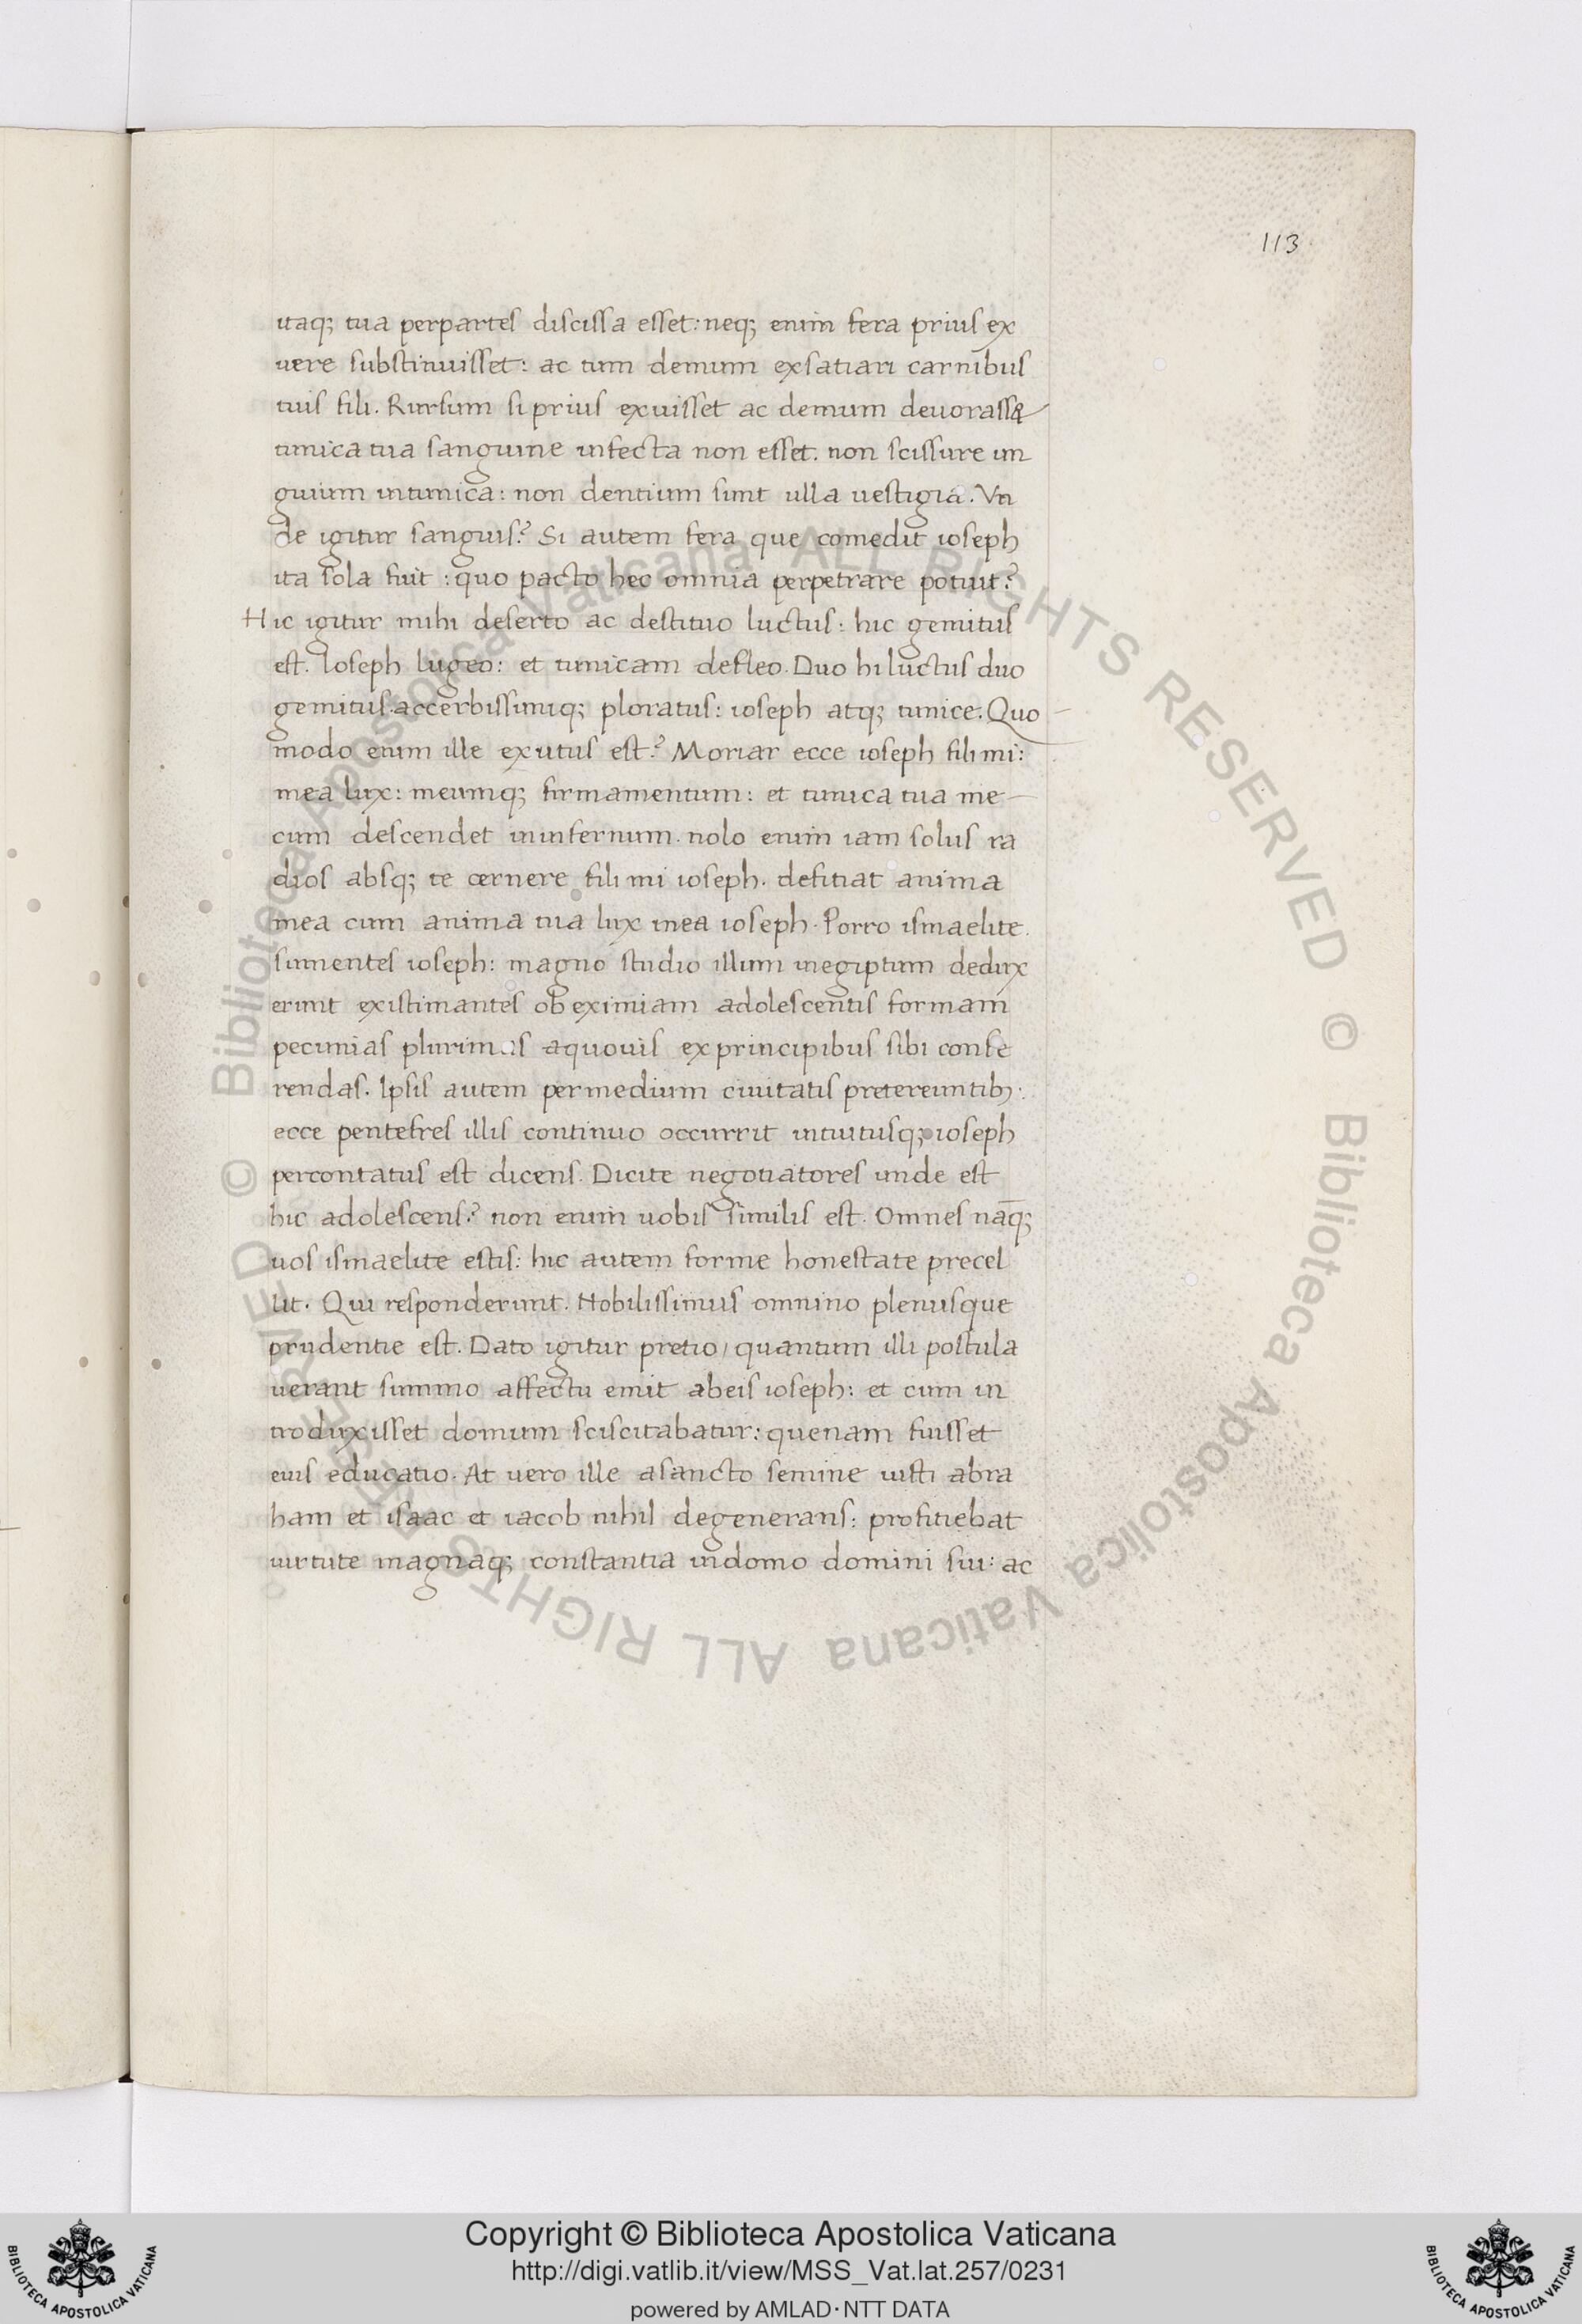 113
itaq; tua perpartes discissa esset: neq; enim fera prius ex
uere substinuisset: ac tum demum exsatiari carnibus
tuis fili. Rursum si prius exuisset ac demum deuorass&
tunica tua sanguine infecta non esset. non scissure un
guium intunica: non dentium sunt ulla uestigia. Vn
de igitur sanguis? Si autem fera que comedit ioseph
ita sola fuit: quo pacto hec omnia perpetrare potuit?
Hic igitur mihi deserto ac destituo luctus: hic gemitus
est. Ioseph lugeo: et tunicam defleo. Duo hi luctus duo
gemitus. accerbissimiq; ploratus: ioseph atq; tunice. Quo
modo enim ille exutus est? Moriar ecce ioseph fili mi:
mea lux: meumq; firmamentum: et tunica tua me
cum descendet ininfernum. nolo enim iam solus ra
dios absq; te cernere fili mi ioseph. defitiat anima
mea cum anima tua lux mea ioseph. Porro ismaelite.
sumentes ioseph: magno studio illum inegiptum dedux
erunt existimantes ob eximiam adolescentis formam
pecunias plurimas aquouis ex principibus sibi confe
rendas. Ipsis autem permedium ciuitatis pretereuntib;.
ecce pentefres illis continuo occurrit intuitusq; ioseph
percontatus est dicens. Dicite negotiatores unde est
hic adolescens? non enim uobis similis est. Omnes nāq;
uos ismaelite estis: hic autem forme honestate precel
lit. Qui responderunt. Nobilissimus omnino plenusque
prudentie est. Dato igitur pretio/ quantum illi postula
uerant summo affectu emit abeis ioseph: et cum in
troduxisset domum sciscitabatur: quenam fuisset
eius educatio. At uero ille asancto semine iusti abra
ham et isaac et iacob nihil degenerans: profitiebat
uirtute magnaq; constantia indomo domini sui: ac
© Biblioteca Apostolica Vaticana ALL RIGHTS RESERVED © Biblioteca Apostolica Vaticana ALL RIGHTS RESERVED
Copyright © Biblioteca Apostolica Vaticana
http://digi.vatlib.it/view/MSS_Vat.lat.257/0231
powered by AMLAD·NTT DATA
BIBLIOTECA APOSTOLICA VATICANA
BIBLIOTECA APOSTOLICA VATICANA